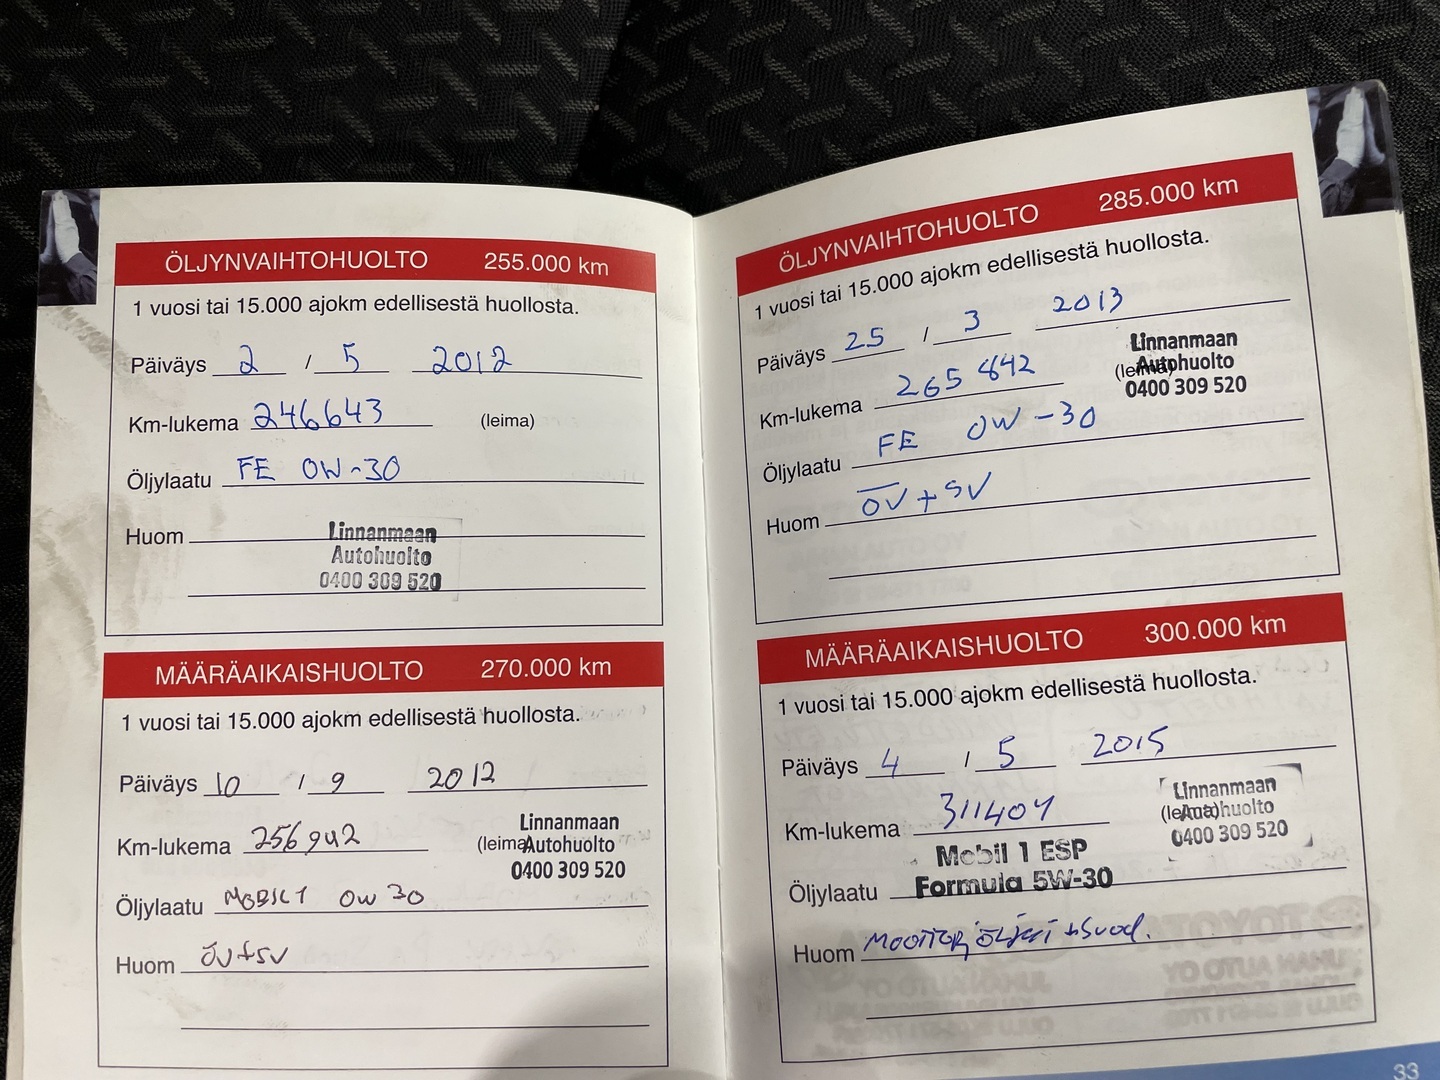 ÖLJYNVAIHTOHUOLTO 255.000 km
1 vuosi tai 15.000 ajokm edellisestä huollosta.
Päiväys 2 / 5 2012
Km-lukema 246643 (leima)
Öljylaatu FE 0W-30
Huom
Linnanmaan
Autohuolto
0400 309 520
MÄÄRÄAIKAISHUOLTO 270.000 km
1 vuosi tai 15.000 ajokm edellisestä huollosta.
Päiväys 10 / 9 2012
Km-lukema 256942 (leima)
Linnanmaan
Autohuolto
0400 309 520
Öljylaatu MOBIL 1 0W 30
Huom ÖV+SV
ÖLJYNVAIHTOHUOLTO 285.000 km
1 vuosi tai 15.000 ajokm edellisestä huollosta.
Päiväys 25 / 3 2013
Km-lukema 265 842 (leima)
Linnanmaan
Autohuolto
0400 309 520
Öljylaatu FE 0W-30
Huom ÖV+SV
MÄÄRÄAIKAISHUOLTO 300.000 km
1 vuosi tai 15.000 ajokm edellisestä huollosta.
Päiväys 4 / 5 2015
Km-lukema 311404 (leima)
Linnanmaan
Autohuolto
0400 309 520
Öljylaatu Mobil 1 ESP
Formula 5W-30
Huom MOOTTORIÖLJYT +Suod.
33